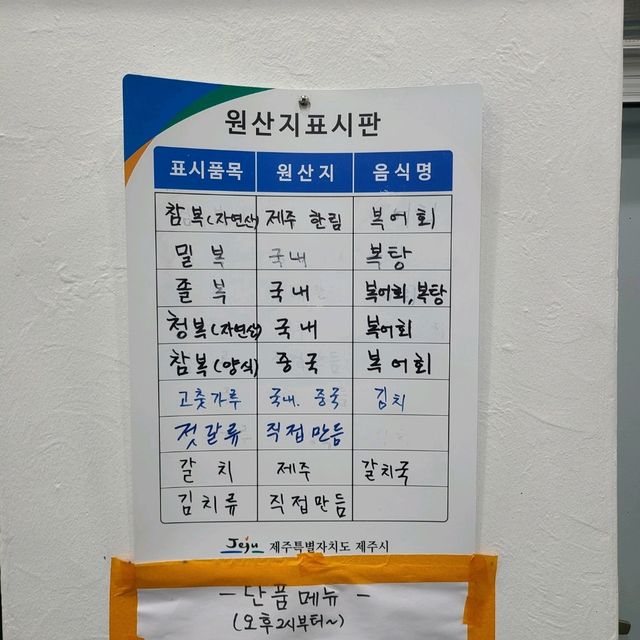 원산지표시판
표시품목 원산지 음식명
참복(자연산) 제주 한림 복어회
밀복 국내 복탕
졸복 국내 복어회, 복탕
청복(자연산) 국내 복어회
참복(양식) 중국 복어회
고춧가루 국내. 중국 김치
젓갈류 직접만듬
갈치 제주 갈치국
김치류 직접만듬
Jeju 제주특별자치도 제주시
- 단품메뉴 -
(오후2시부터~)